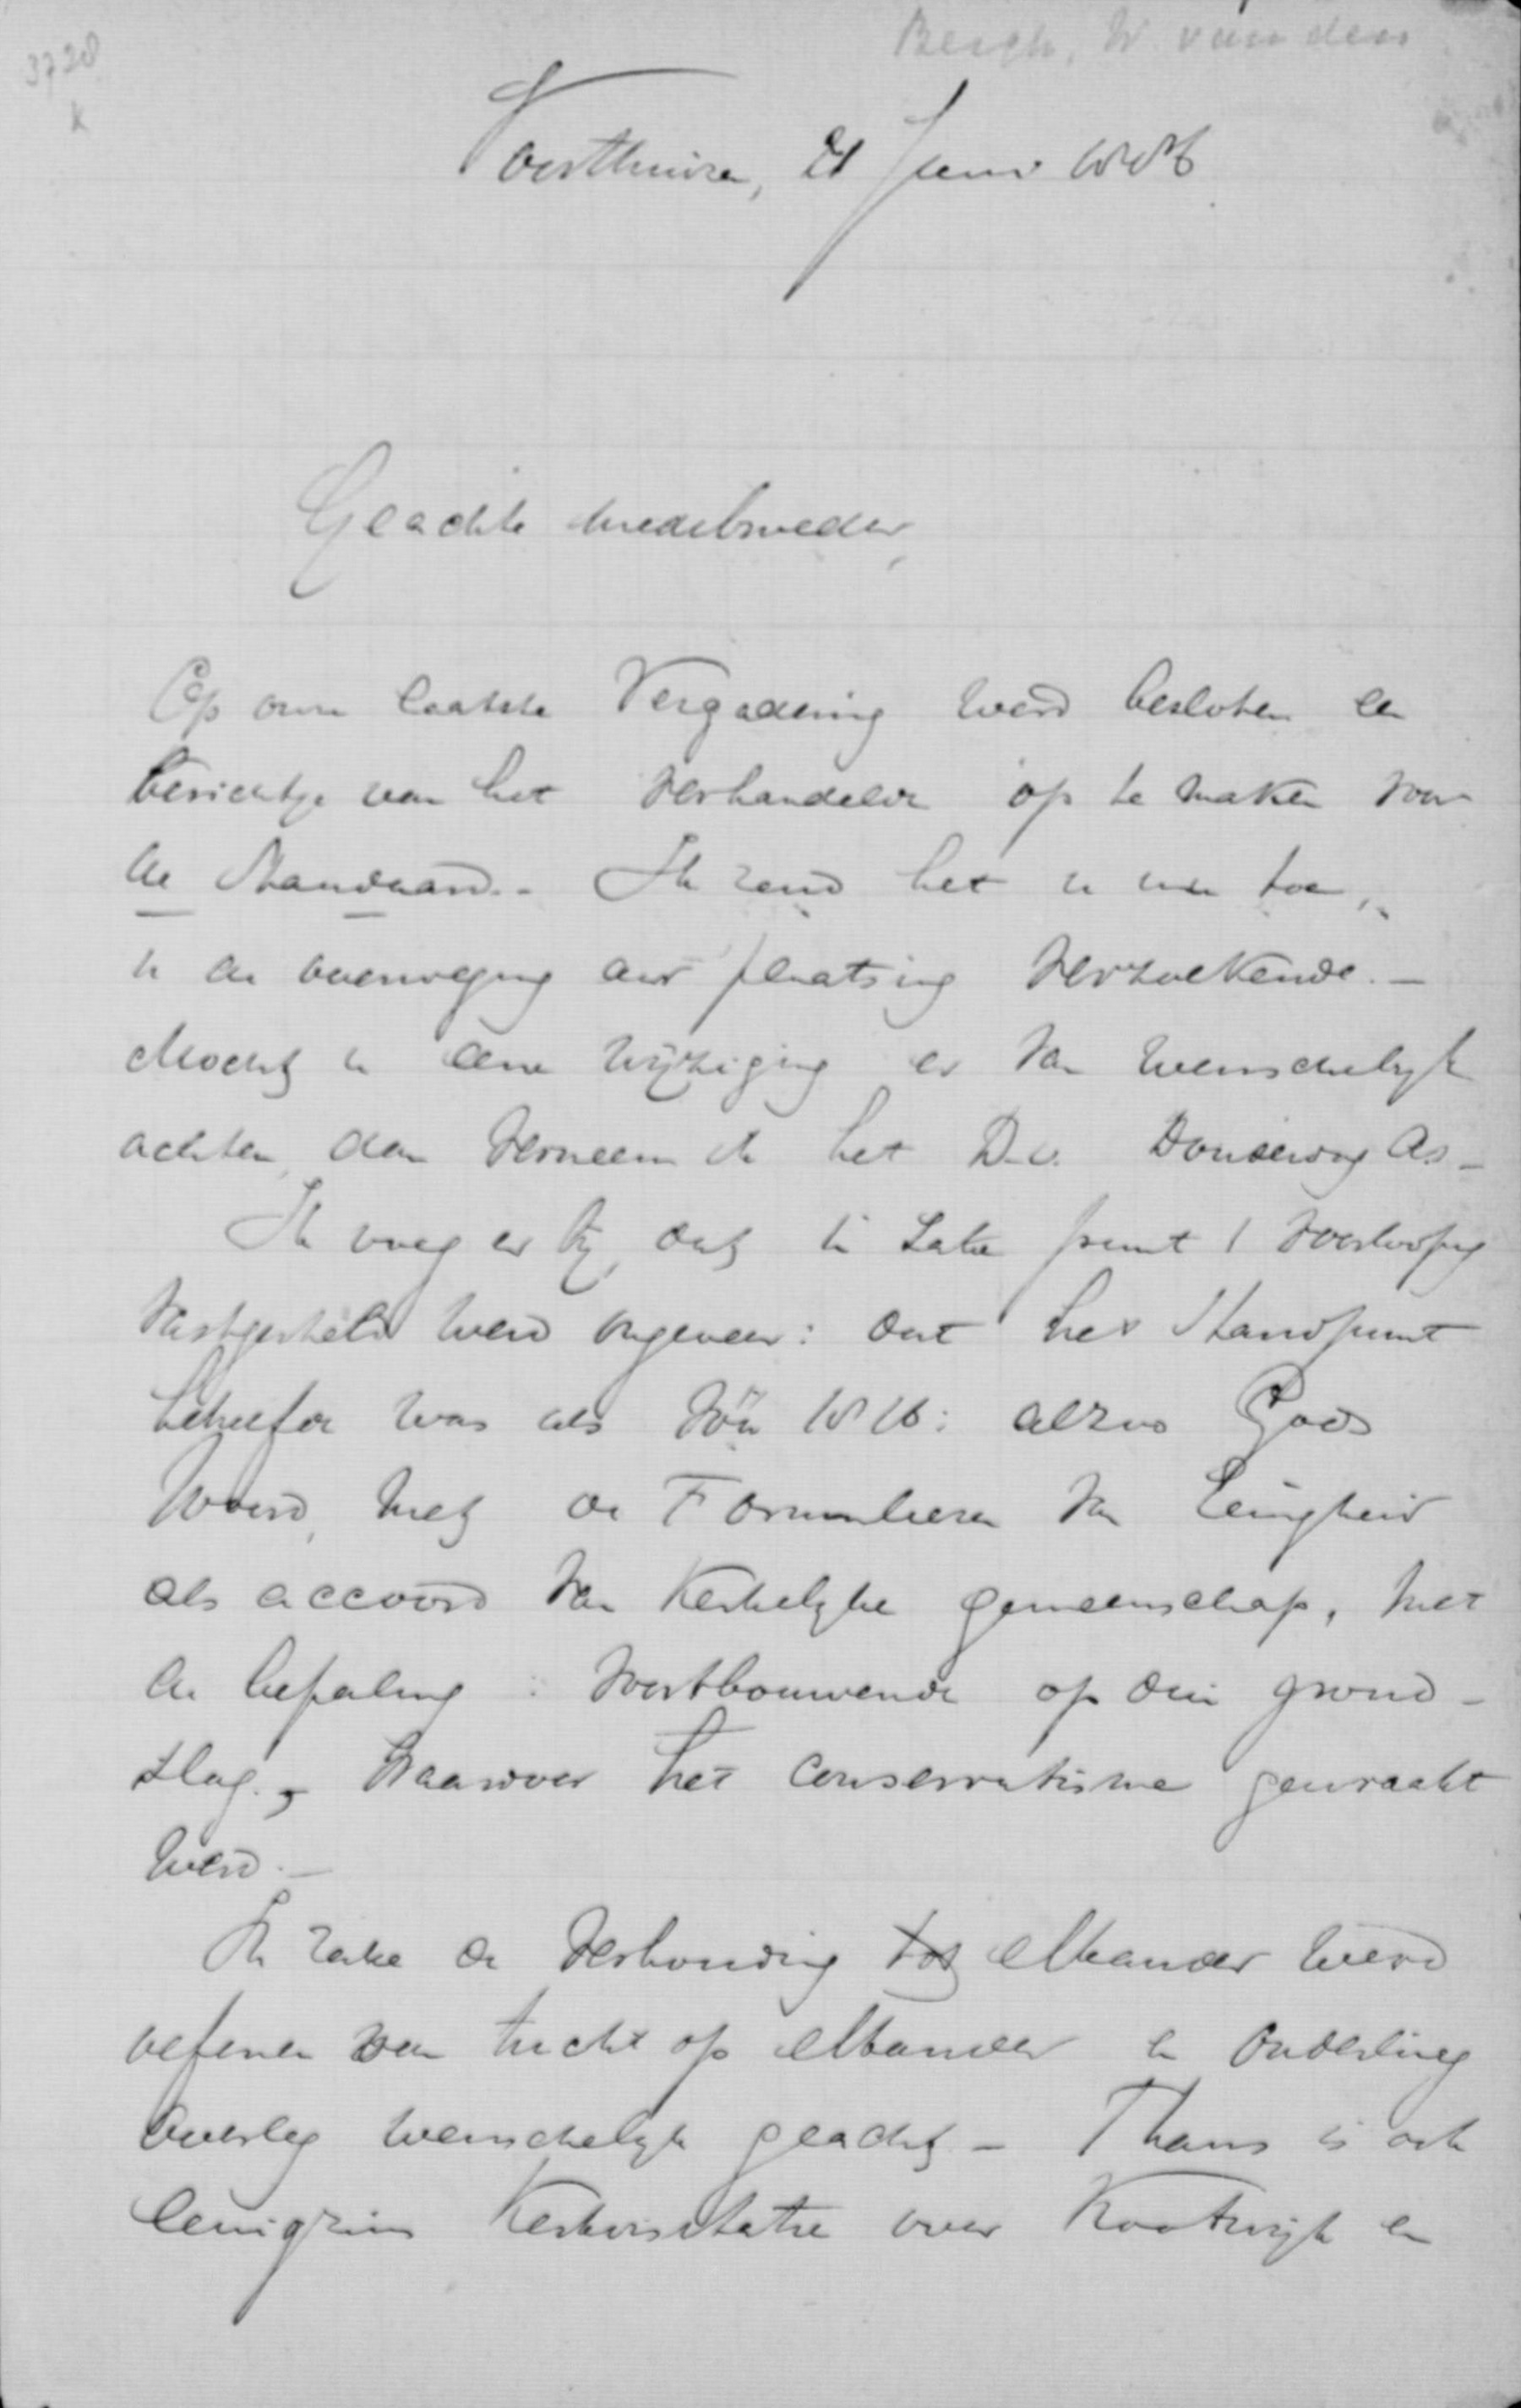 3728
k
Bergh, W. van den
Voorthuizen, 21 Juni 1886.
Geachte medebroeder,
Op onze laatste Vergadering werd besloten een
berichtje van het verhandelde op te maken voor
de Standaard. - Ik zend het u nu toe,
u de overweging der plaatsing verzoekende. -
Mocht u eene wijziging er van wenschelijk
achten, dan verneem ik het D.v. Donderdag a.s. -
Ik voeg er bij, dat in zake punt 1 voorloopig
vastgesteld werd ongeveer: dat het standpunt
hetzelfde was als vóór 1816: alzoo Gods
Woord, met de Formulieren van Eenigheid
als accoord van Kerkelijke gemeenschap, met
de bepaling: voortbouwende op dien grond-
slag, - waardoor het conservatisme gewraakt
werd. -
In zake de verhouding tot elkander werd
oefenen van tucht op elkander en onderling
overleg wenschelijk geacht - Thans is ook
eenigzins Kerkvisitatie over Kootwijk en